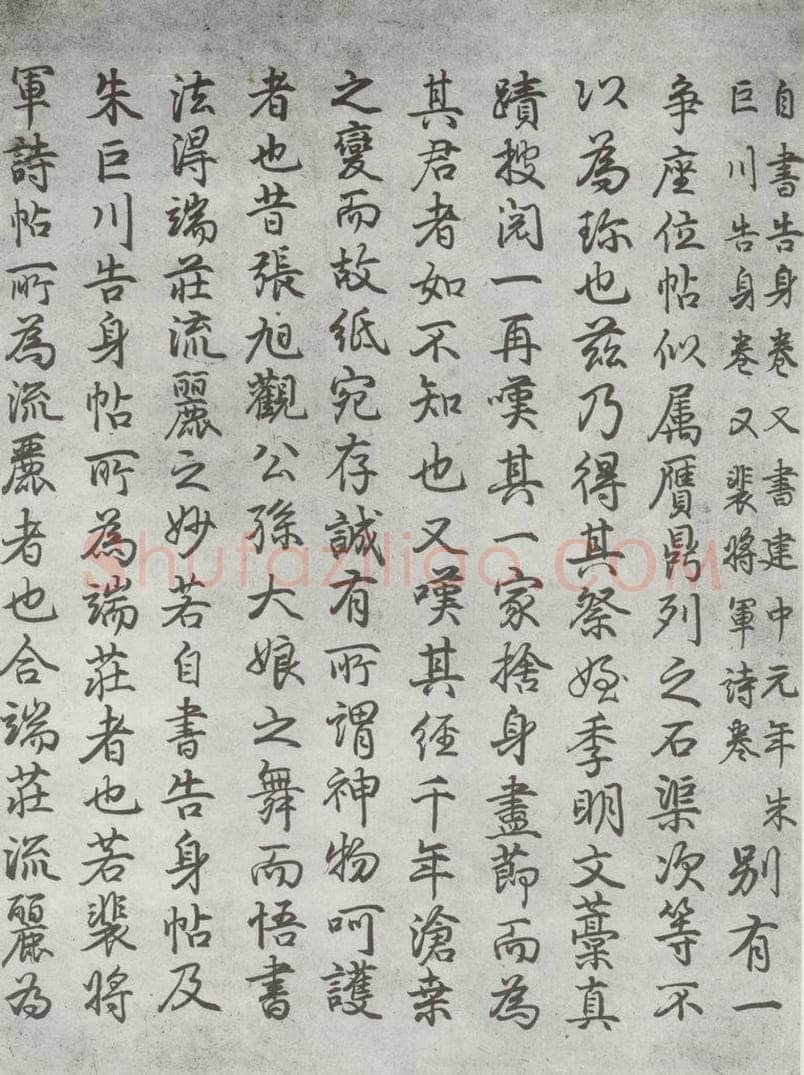 自書告身卷又書建中元年朱
巨川告身卷又裴將軍詩卷
別有一
爭座位帖似属贋鼎列之石渠次等不
以為珎也茲乃得其祭姪季明文藁真
蹟披閱一再嘆其一家捨身盡節而為
其君者如不知也又嘆其經千年滄桒
之變而故紙宛存誠有所謂神物呵護
者也昔張旭觀公孫大娘之舞而悟書
法得端莊流麗之妙若自書告身帖及
朱巨川告身帖所為端莊者也若裴將
軍詩帖所為流麗者也合端莊流麗為
Shufaziliao.COM